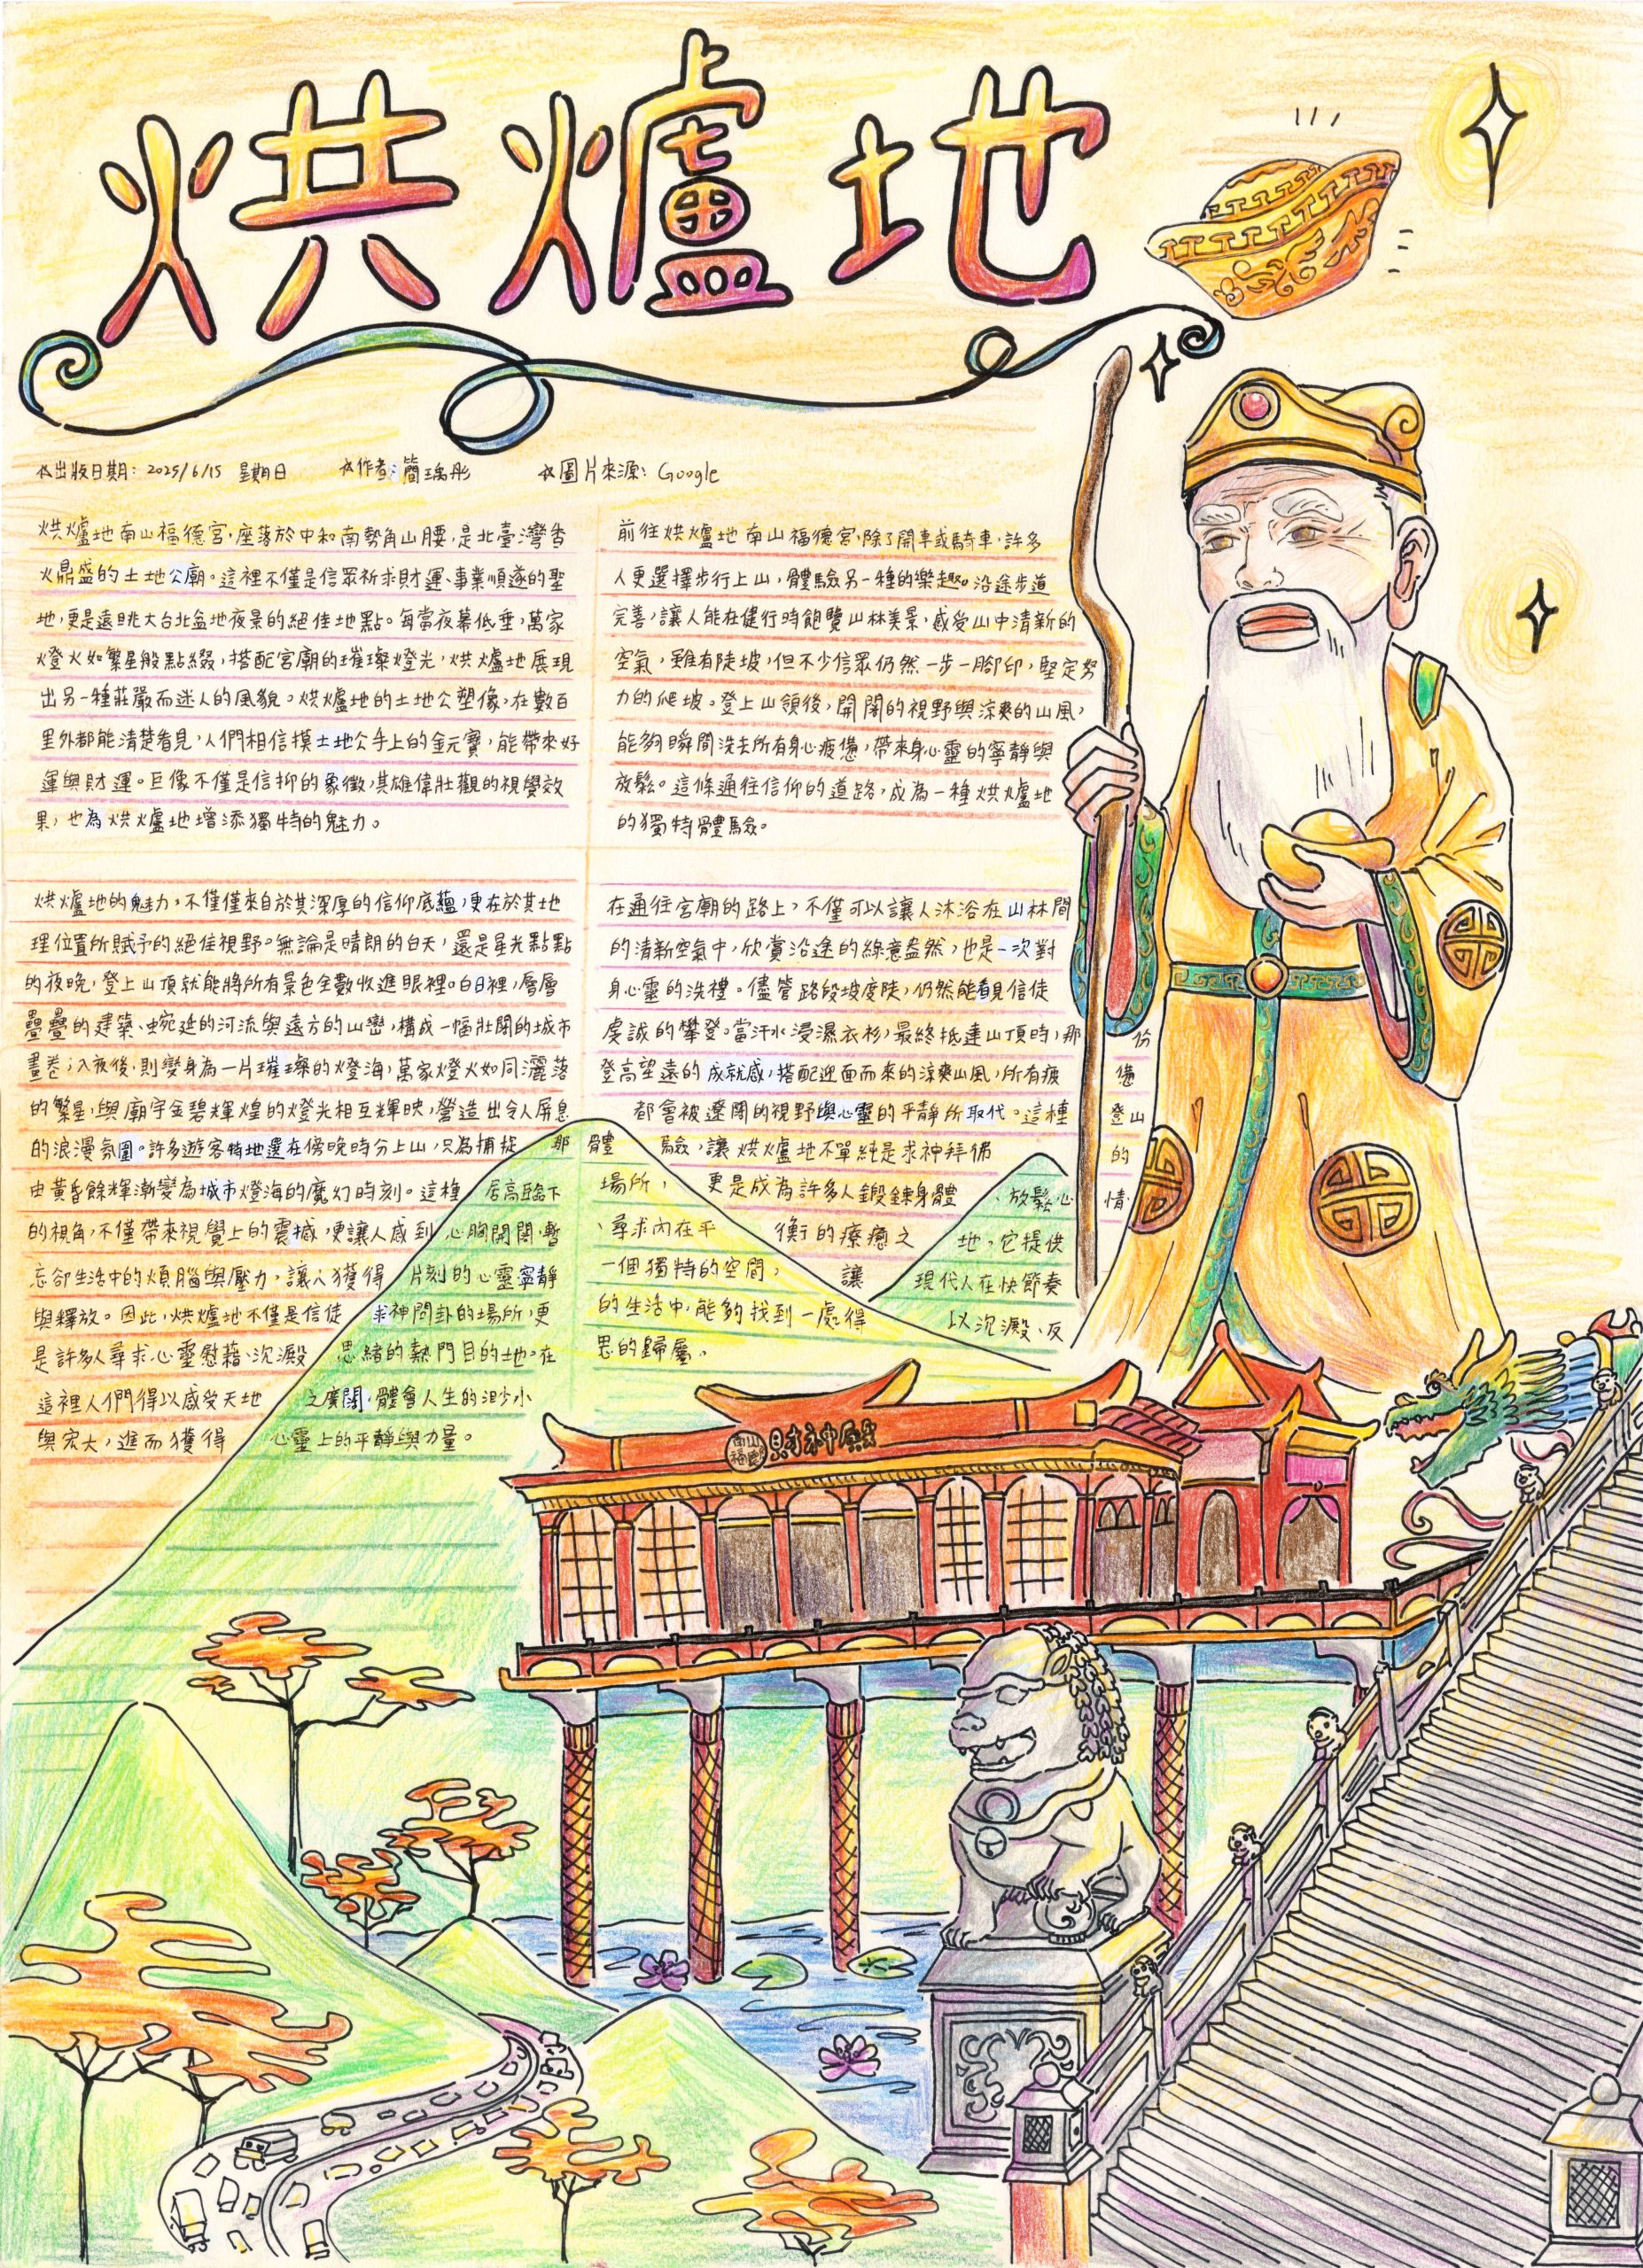 烘爐地
☆出版日期：2025/6/15 星期日 ☆作者：簡瑀彤 ☆圖片來源：Google
烘爐地南山福德宮，座落於中和南勢角山腰，是北臺灣香
火鼎盛的土地公廟。這裡不僅是信眾祈求財運、事業順遂的聖
地，更是遠眺大台北盆地夜景的絕佳地點。每當夜幕低垂，萬家
燈火如繁星般點綴，搭配宮廟的璀璨燈光，烘爐地展現
出另一種莊嚴而迷人的風貌。烘爐地的土地公塑像，在數百
里外都能清楚看見，人們相信摸土地公手上的金元寶，能帶來好
運與財運。巨像不僅是信仰的象徵，其雄偉壯觀的視覺效
果，也為烘爐地增添獨特的魅力。
前往烘爐地南山福德宮，除了開車或騎車，許多
人更選擇步行上山，體驗另一種的樂趣。沿途步道
完善，讓人能在健行時飽覽山林美景，感受山中清新的
空氣，雖有陡坡，但不少信眾仍然一步一腳印，堅定努
力的爬坡。登上山領後，開闊的視野與涼爽的山風，
能夠瞬間洗去所有身心疲憊，帶來身心靈的寧靜與
放鬆。這條通往信仰的道路，成為一種烘爐地
的獨特體驗。
烘爐地的魅力，不僅僅來自於其深厚的信仰底蘊，更在於其地
理位置所賦予的絕佳視野。無論是晴朗的白天，還是星光點點
的夜晚，登上山頂就能將所有景色全數收進眼裡。白日裡，層層
疊疊的建築、蜿蜒的河流與遠方的山巒，構成一幅壯闊的城市
畫卷；入夜後，則變身為一片璀璨的燈海，萬家燈火如同灑落
的繁星，與廟宇金碧輝煌的燈光相互輝映，營造出令人屏息
的浪漫氛圍。許多遊客特地選在傍晚時分上山，只為捕捉那
由黃昏餘輝漸變為城市燈海的魔幻時刻。這種居高臨下
的視角，不僅帶來視覺上的震撼，更讓人感到心胸開闊，暫
忘卻生活中的煩腦與壓力，讓人獲得片刻的心靈寧靜
與釋放。因此，烘爐地不僅是信徒求神問卦的場所，更
是許多人尋求心靈慰藉、沉澱思緒的熱門目的地。在
這裡人們得以感受天地之廣闊，體會人生的渺小
與宏大，進而獲得心靈上的平靜與力量。
在通往宮廟的路上，不僅可以讓人沐浴在山林間
的清新空氣中，欣賞沿途的綠意盎然，也是一次對
身心靈的洗禮。儘管路段坡度陡，仍然能看見信徒
虔誠的攀登。當汗水浸濕衣衫，最終抵達山頂時，那份
登高望遠的成就感，搭配迎面而來的涼爽山風，所有疲憊
都會被遼闊的視野與心靈的平靜所取代。這種登山
體驗，讓烘爐地不單純是求神拜佛的
場所，更是成為許多人鍛鍊身體、放鬆心情
、尋求內在平衡的療癒之地。它提供
一個獨特的空間，讓現代人在快節奏
的生活中，能夠找到一處得以沉澱、反
思的歸屬。
南山福德
財神殿